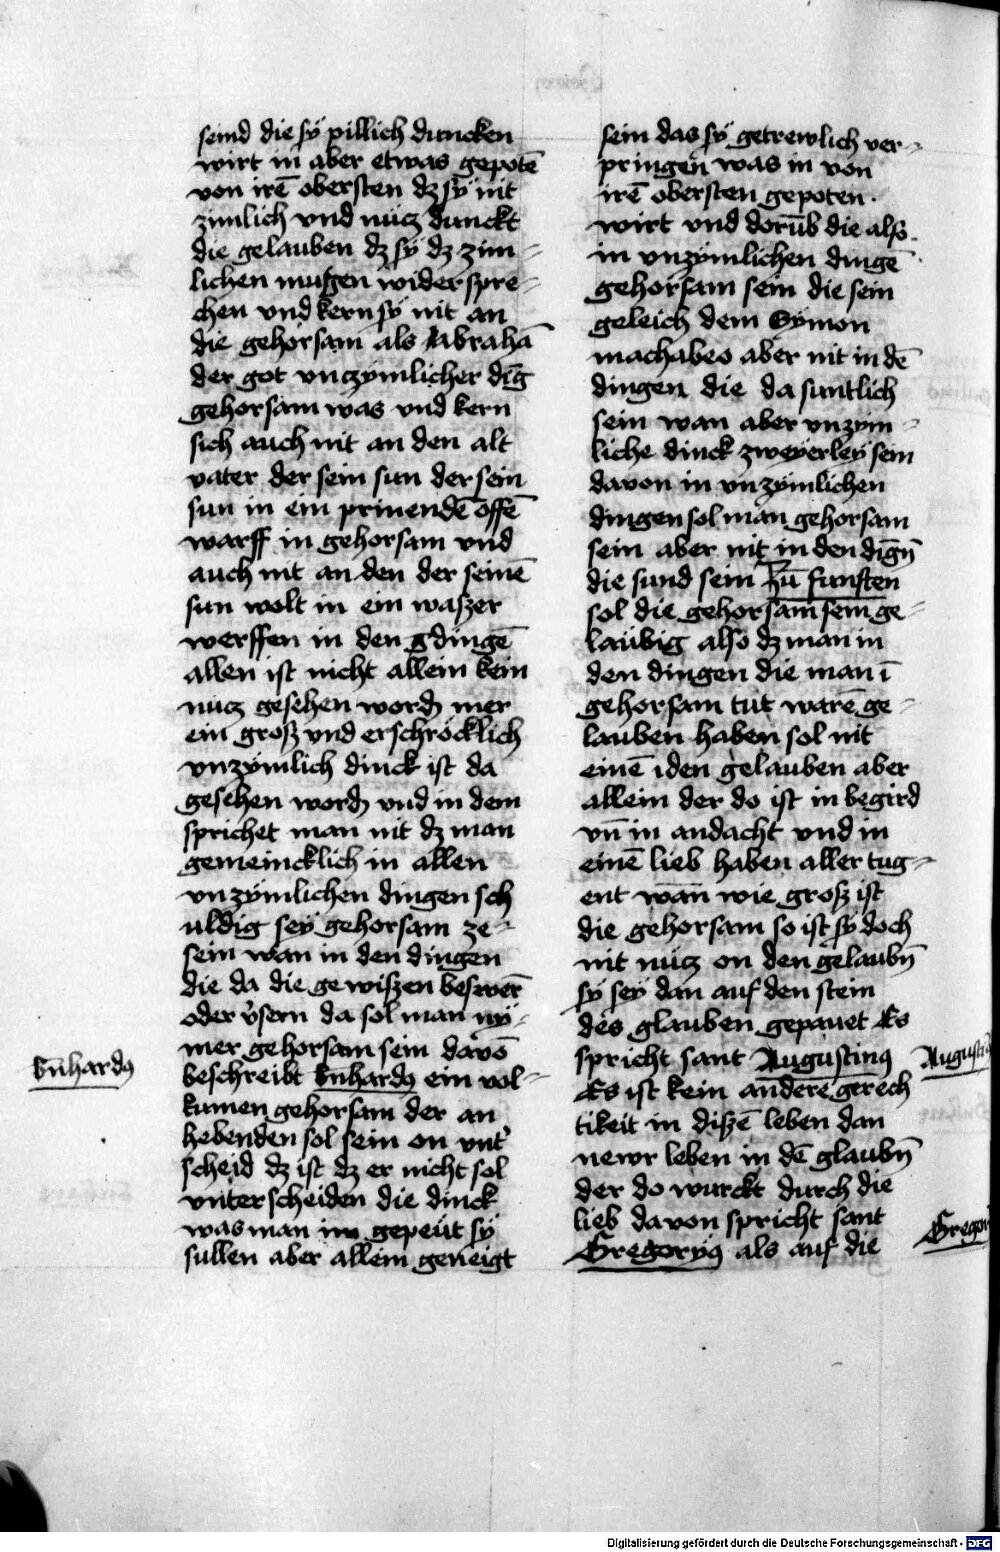 seind die sÿ pillich duncken
wirt in aber etwas gepotē
von irē obersten dz sÿ nit
zimlich vnd nücz dunckt
die gelauben dz sÿ dz zim-
lichen mußen wider spre-
chen vnd kern sÿ nit an
die gehorsam als Abrahā
der got vnczymlicher dīg
gehorsam was vnd kern
sich auch nit an den alt
vater der sein sun der sein
sun in ein prinendē offē
warff in gehorsam vnd
auch nit an den der seinē
sun wolt in ein waszer
werffen in den dingē
allen ist nicht allein kein
nücz gesehen word mer
ein grosz vnd erschröcklich
vnzÿmlich dinck ist da
gesehen word vnd in dem
sprichet man nit dz man
gemeincklich in allen
vnzÿmlichen dingen sch
uldig seÿ gehorsam ze-
sein wan in den dingen
die da die gewiszen beswer̄
oder v̓sern da sol man nÿ-
mer gehorsam sein davō
beschreibt bn̄hardꝯ ein vol-
kumen gehorsam der an
hebenden sol sein on vnt̓
scheid dz ist dz er nicht sol
vnterscheiden die dinck
was man im gepeüt sÿ
sullen aber allein geneigt
bn̄hardꝯ
sein das sÿ getrewlich ver-
pringen was in von
irē obersten gepoten.
wirt vnd dorūb die also
in vnzÿmlichen dingē
gehorsam sein die sein
geleich dem Sÿmon
machabeo aber nit in dē
dingen die da suntlich
sein wan aber vnzym-
liche dinck zweÿerleÿ sein
davon in vnzÿmlichen
dingen sol man gehorsam
sein aber nit in den dīgn̄
die sund sein Zū funften
sol die gehorsam sein ge-
laübig also dz man in
den dingen die man ī
gehorsam tut warē ge-
lauben haben sol nit
einē iden gelauben aber
allein der do ist in begird
vn̄ in andacht vnd in
einē lieb haben aller tug-
ent wan̄ wie grosz ist
die gehorsam so ist sÿ doch
nit nücz on den gelaubn̄
sÿ seÿ dan auf den stein
des glauben gepauet Es
spricht sant Augustinꝯ
Es ist kein andere gerech
tikeit in diszē leben dan
newr leben in dē glaubn̄
der do wurckt durch die
lieb davon spricht sant
Gregoryꝯ als auf die
Augusti
Gregor
Digitalisierung gefördert durch die Deutsche Forschungsgemeinschaft - DFG